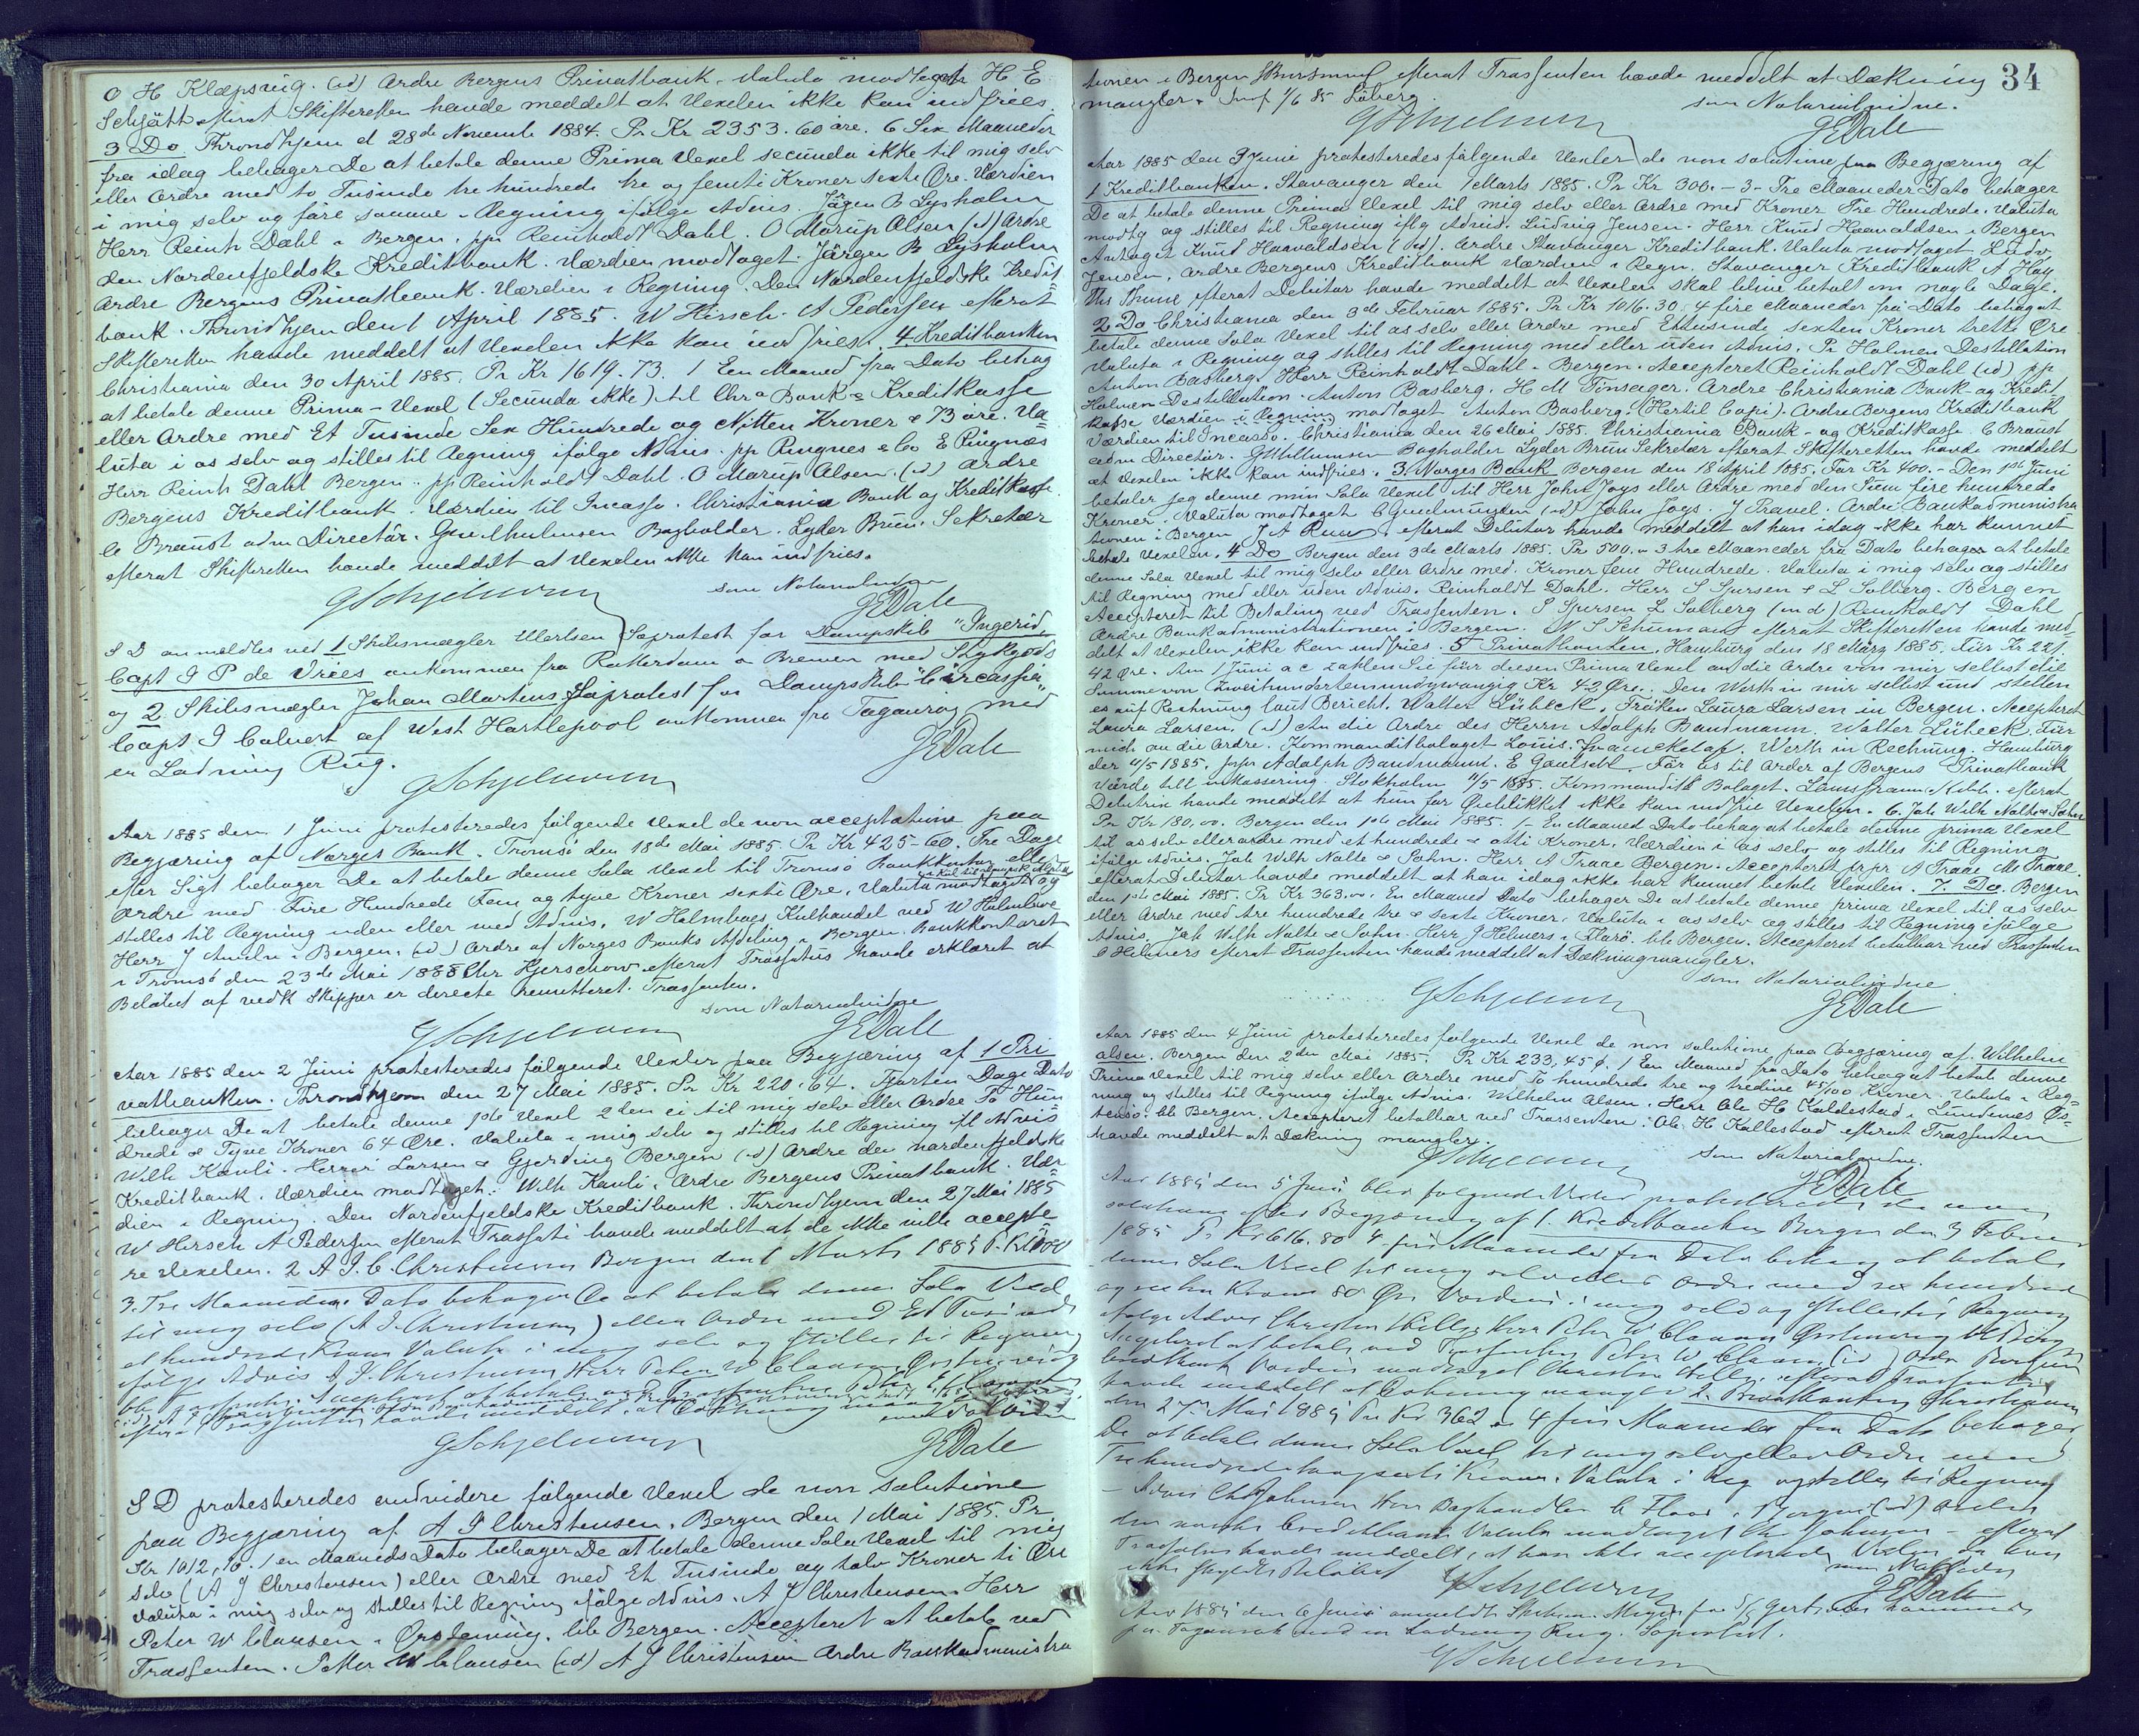 O H Klæpsvig. (id) Ordre Bergens Privatbank. Valuta modtaget H E
Schjött efterat Skifteretten havde meddelt at Vexelen ikke kan indfries.
3 Do Throndhjem d 28de Novemb 1884. Pr Kr 2353.60 øre. 6 Sex Maaneder
fra idag behager De at betale denne Prima Vexel secunda ikke til mig selv
eller Ordre med to Tusinde tre hundrede tre og femti Kroner sexti Øre. Værdien
i mig selv og føre samme i Regning ifølge Advis. Jørgen B Lysholm
Herr Reinh Dahl i Bergen. pp Reinholdt Dahl. O Mørup Olsen (id) Ordre
den Nordenfjeldske Kreditbank. Værdien modtaget. Jørgen B Lysholm
Ordre Bergens Privatbank. Værdien i Regning. Den Nordenfjeldske Kredit
bank. Throndhjem den 1 April 1885. W Hirsch. A Pedersen efterat
Skifteretten havde meddelt at Vexelen ikke kan indfries. 4 Kreditbanken
Christiania den 30 April 1885. Pr Kr 1619.73. 1 Een Maaned fra Dato behag
at betale denne Prima-Vexel (Secunda ikke) til Chra Bank & Kreditkasse
eller Ordre med Et Tusinde Sex Hundrede og Nitten Kroner & 73 øre. Va=
luta i os selv og stilles til Regning ifølge Advis. pp Ringnes & Co E Ringnæs
Herr Reinh Dahl Bergen. pp Reinholdt Dahl. O Mørup Olsen. (id) Ordre
Bergens Kreditbank. Værdien til Incasso. Christiania Bank og Kreditkasse.
C Braust adm Directør. Bogholder. Lyder Brun. Sekretær
efterat Skifteretten havde meddelt at Vexelen ikke kan indfries.
som Notarialvidne
GSchjelderup JEDale
S D anmeldtes ved 1 Skibsmægler Søprotest for Dampskib "Ingerid"
Capt I P de Vries ankommen fra Rotterdam o Bremen med Stykgods
og 2 Skibsmægler Johan Martens Søprotest for Dampskib "Circassia"
Capt I Calvert af West Hartlepool ankommen fra Taganrog med
en Ladning Rug.
GSchjelderup JEDale
Aar 1885 den 1 Juni protesteredes følgende Vexel de non acceptatione paa
Begjæring af Norges Bank. Tromsö den 18de Mai 1885. Pr Kr 425-60. Tre Dage
efter Sigt behager De at betale denne Sola Vexel til Tromsö Bankkontor eller
Ordre med Fire Hundrede Fem og tyve Kroner sexti Øre, Valuta modtaget og
stilles til Regning uden eller med Advis. W Holmboes Kulhandel ved W Holmboe
Herr J i Bergen. (id) Ordre af Norges Banks Afdeling i Bergen. Bankkontoret
i Tromsö den 23de Mai 1885 Hjerschow efterat Trassatus havde erklæret at
Beløbet af vedk Skipper er directe remitteret Trassenten.
som Notarialvidne
GSchjelderup JEDale
Aar 1885 den 2 Juni protesteredes følgende Vexler paa Begjæring af 1 Pri
vatbanken. Throndhjem den 27 Mai 1885. Pr Kr 220.64. Fjorten Dage Dato
behager De at betale denne 1ste Vexel 2den ei til mig selv eller Ordre To Hun
drede & Tyve Kroner 64 Øre. Valuta i mig selv og stilles til Regning ifl Advis
Wilh Kauli. Herrer Larsen & Gjerding Bergen (id) Ordre den nordenfjeldske
Kreditbank. Værdien modtaget: Wilh Kauli. Ordre Bergens Privatbank. Vær
dien i Regning Den Nordenfjeldske Kreditbank. Throndhjem den 27 Mai 1885
W Hirsch A Pedersen efterat Trassati havde meddelt at de ikke ville accepte
re Vexelen. 2 A J. C. Christensen Bergen den 1 Marts 1885 P. Kr
3. Tre Maaneder Dato behager De at betale denne Sola Vexel
til mig selv (A J. Christensen) eller Ordre med Et Tusinde
et hundrede Kroner Valuta i mig selv og stilles til Regning
ifølge Advis A J. Christensen Herr Peter W Clausen Ørstenvig
Accepteret at betale ved Trassenten Peter W Clausen
efterat Trassenten havde meddelt, at Dækning mangler
GSchjelderup JEDale
S D protesteredes endvidere følgende Vexel de non solutione
paa Begjæring af A J Christensen. Bergen den 1 Mai 1885. Pr
Kr 1012,10. 1 en Maaneds Dato behager De at betale denne Sola Vexel til mig
selv (A J Christensen) eller Ordre med Et Tusinde og tolv Kroner ti Øre
Valuta i mig selv og stilles til Regning ifølge Advis. A J Christensen Herr
Peter W Clausen i Ørstenvig. bb Bergen. Accepteret at betale ved
Trassenten. Peter W Clausen (id) A J Christensen Ordre Bankadministra
34
tionen i Bergen efterat Trassenten havde meddelt at Dækning
mangler. 1/6 85 Søberg
som Notarialvidne.
GSchjelderup JEDale
Aar 1885 den 3 Juni protesteredes følgende Vexler de non solutione paa Begjæring af
1 Kreditbanken. Stavanger den 1 Marts 1885. Pr Kr 300. - 3 - Tre Maaneder Dato behager
De at betale denne Prima Vexel til mig selv eller Ordre med Kroner Tre Hundrede. Valuta
modtg og stilles til Regning iflg Advis. Ludvig Jensen. Herr Knud Haavaldsen i Bergen
Antaget Knud Haavaldsen (id). Ordre Stavanger Kreditbank. Valuta modtaget Ludv
Jensen, Ordre Bergens Kreditbank Værdien i Regn. Stavanger Kreditbank
Ths Thune efterat Debitor havde meddelt at Vexelen skal blive betalt om nogle Dage.
2 Do Christiania den 3de Februar 1885. Pr Kr 1016.30. 4 fire Maaneder fra Dato behag at
betale denne Sola Vexel til os selv eller Ordre med Ettusinde sexten Kroner tretti Øre
Valuta i Regning og stilles til Regning med eller uden Advis. Pr Holmen Destillation
Anton Basberg. Herr Reinholdt Dahl - Bergen. Accepteret Reinholdt Dahl (id) pp
Holmen Destillation. Anton Basberg. H M Tönseger. Ordre Christiania Bank- og Kredit
kasse Værdien i Regning modtaget Anton Basberg. (Hertil Copi). Ordre Bergens Kreditbank
Værdien til Incasso. Christiania den 26 Mai 1885. Christiania Bank- og Kreditkasse C Braust
adm Directør. Bogholder Lyder Brun Sekretær efterat Skifteretten havde meddelt
at Vexelen ikke kan indfries. 3 Norges Bank Bergen den 18 April 1885. For Kr 400. - Den 1ste Juni
betaler jeg denne min Sola Vexel til Herr John Joys eller Ordre med den Sum fire hundrede
Kroner. Valuta modtaget C Gundmunden (id) John Joys. J Travel. Ordre Bankadministra
tionen i Bergen efterat Debitor havde meddelt at han idag ikke har kunnet
betale Vexelen. 4 Do Bergen den 3de Marts 1885. Pr 500. - 3 tre Maaneder fra Dato behager at betale
denne Sola Vexel til mig selv eller Ordre med. Kroner fem Hundrede. Valuta i mig selv og stilles
til Regning med eller uden Advis. Reinholdt Dahl. Herr S Spursen & L Solberg. Bergen
Accepteret til Betaling ved Trassenten. S Spursen L Solberg (ind) Reinholdt Dahl
Ordre Bankadministrationen i Bergen. W S Schumann efterat Skifteretten havde med
delt at Vexelen ikke kan indfries. 5 Privatbanken. Hamburg den 18 März 1885. Für Kr 221.
42 Øre. Am 1 Juni a c zahlen Sie für diesen Prima Vexel an die Ordre von mir selbst die
Summe von Zweihunderteinundzwanzig Kr 42 Øre. Den Werth in mir selbst und stellen
es auf Rechnung laut Bericht. Walter Lübeck. Fröken Laura Larsen in Bergen. Accepteret
Laura Larsen. (id) An die Ordre des Herrn Adolph Bandmann. Walter Lübeck. Für
mich an die Ordre. Kommanditbolaget Louis. Werth in Rechnung. Hamburg
der 4/5 1885. ppr Adolph Bandmann. E. För os til order af Bergens Privatbank
Värde till inkassering. Stokholm 11/5 1885. Kommandit Bolaget. efterat
Debitrix havde meddelt at hun for Øieblikket ikke kan indfrie Vexelen. 6. Joh Wilh Nolte & Søhn
Pr Kr 180,00. Bergen den 1ste Mai 1885. 1 - En Maaned Dato behag at betale denne prima Vexel
til os selv eller ordre med et hundrede & otti Kroner, Værdien i os selv og stilles til Regning
ifølge Advis. Joh Wilh Nolte & Søhn. Herr A Traae Bergen. Accepteret pr pr A Traae M Traae.
efterat Debitor havde meddelt at han idag ikke har kunnet betale Vexelen. 7. Do. Bergen
den 1ste Mai 1885. Pr Kr 363.00. En Maaned Dato behager De at betale denne prima Vexel til os selv
eller Ordre med tre hundrede tre & sexti Kroner, Valuta i os selv og stilles til Regning ifølge
Advis. Joh Wilh Nolte & Søhn. Herr J Helmers i Florø. bb Bergen. Accepteret betalbar ved Trassenten
Helmers efterat Trassenten havde meddelt at Dækning mangler.
som Notarialvidne
GSchjelderup JEDale
Aar 1885 den 4 Juni protesteredes følgende Vexel de non solutione paa Begjæring af Wilhelm
Olsen. Bergen den 2den Mai 1885. Pr Kr 233,45 ø. 1 Een Maaned fra Dato behag at betale denne
Prima Vexel til mig selv eller Ordre med To hundrede tre og tredive 45/100 Kroner. Valuta i Reg=
ning og stilles til Regning ifølge Advis. Wilhelm Olsen. Herr Ole H Kaldestad i Lundenes Øs=
tensö. bb Bergen. Accepteret betalbar ved Trassenten. Ole H Kallestad efterat Trassenten
havde meddelt at Dækning mangler.
som Notarialvidne.
GSchjelderup JEDale
Aar 1885 den 5 Juni blev følgende Vexler protesterede de non
solutione efter Begjæring af 1. Kreditbanken Bergen den 3 Februar
1885 Pr Kr 616.80 4 fire Maaneder fra Dato behag at betale
denne Sola Vexel til mig selv eller Ordre med sex hundrede
og sexten Kroner 80 Øre Værdien i mig selv og stilles til Regning
ifølge Advis Christen Herr Peter W Clausen Ørstenvig
Accepteret at betale ved Trassenten Peter W Clausen (id) Ordre Bergens
Kreditbank Værdien modtaget Christen efterat Trassenten
havde meddelt at Dækning mangler 2. Privatbanken Christiania
den 27. Mai 1885 Pr Kr 362 4 fire Maaneder fra Dato behager
De at betale denne Sola Vexel til mig selv eller Ordre med
Trehundrede to og sexti Kroner. Valuta i Reg og stilles til Regning
Advis Chr Johnsen Herr Boghandler C Floor i Bergen (id) Ordre
den norske Creditbank Valuta modtaget Chr Johnsen - efterat
Trassatus havde meddelt, at han ikke accepterede Vexlen da han
ikke skyldte Beløbet
GSchjelderup JEDale
Aar 1885 den 6 Juni anmeldte for S/S Gert
fra Taganrok med en Ladning Rug. Søprotest.
GSchjelderup